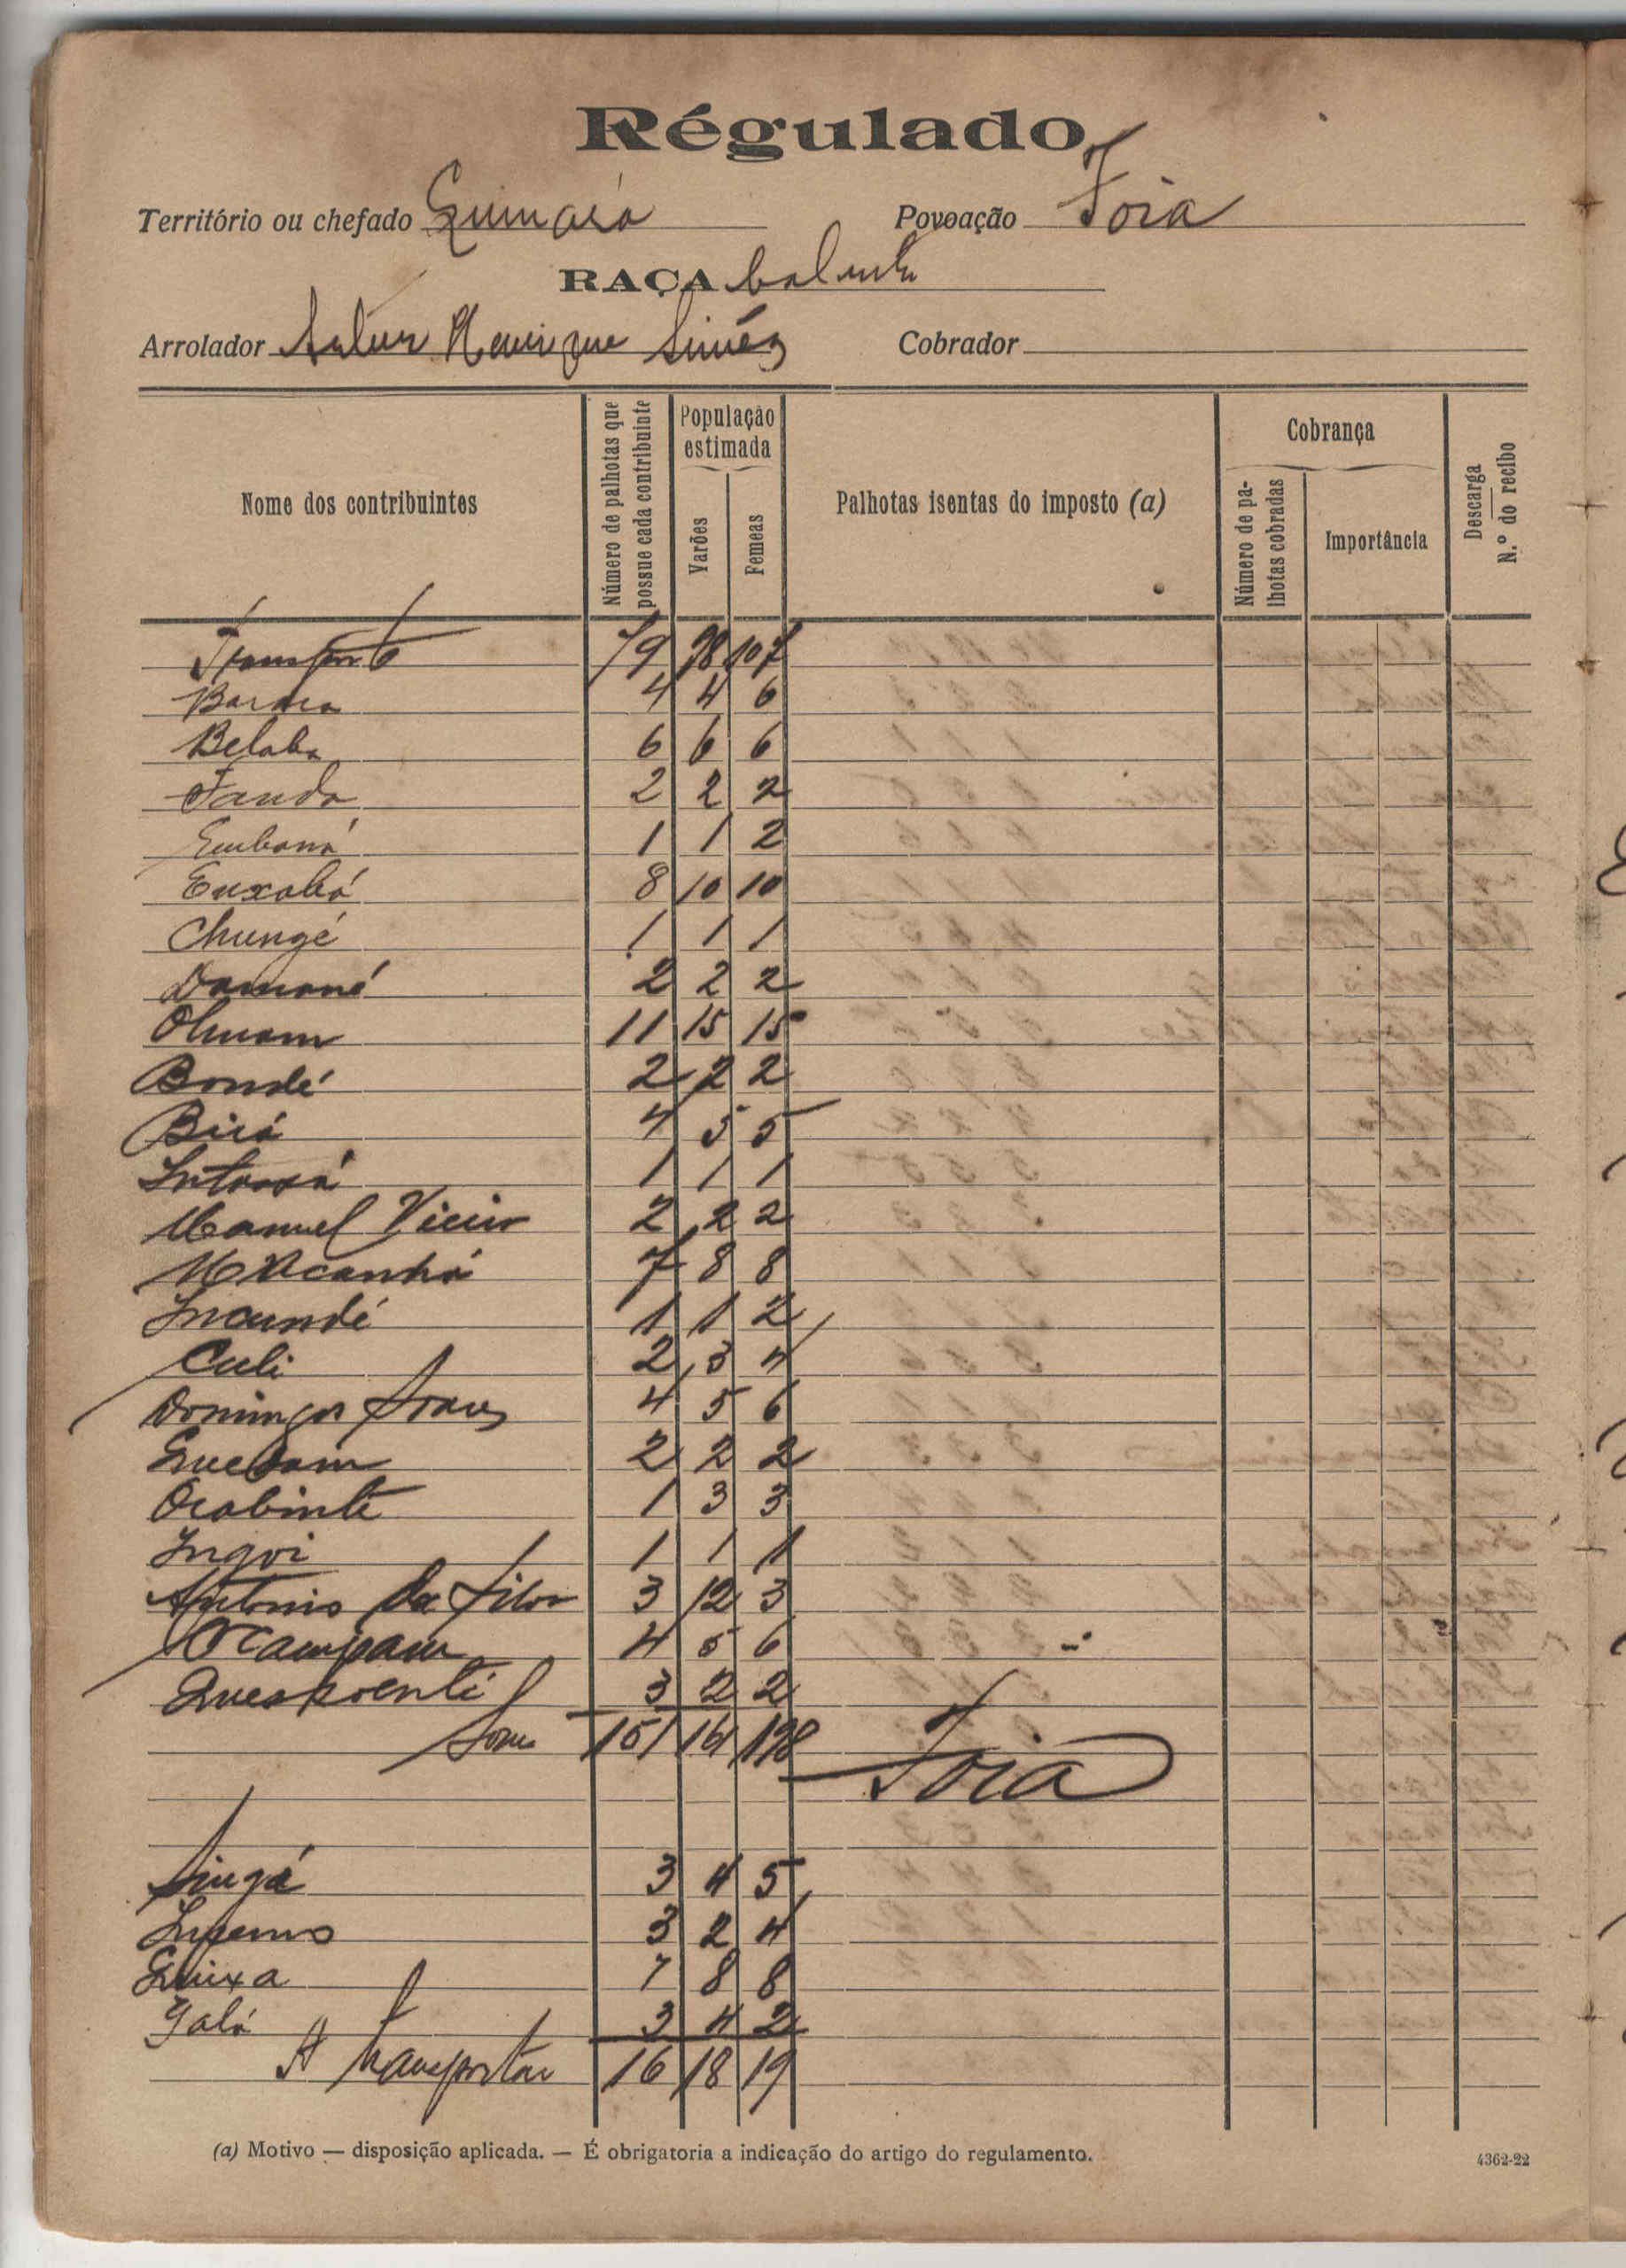 Régulado
Território ou chefado Povoação Foia
RAÇA balanta
Arrolador Artur Henrique Simões Cobrador
Nome dos contribuintes Número de palhotas que possue cada contribuinte População estimada Varões Femeas Palhotas isentas do imposto (a) Cobrança Número de pa-lhotas cobradas Importância Descarga N.º do recibo
Transporte 79 98 107
4 4 6
Belaba 6 6 6
Fanda 2 2 2
Embaná 1 1 2
8 10 10
Chungé 1 1 1
Damané 2 2 2
11 15 15
Bondé 2 2 2
Birá 4 5 5
1 1 1
Manuel Vieira 2 2 2
7 8 8
Incundé 1 1 2
Culi 2 3 4
Domingos Soares 4 5 6
2 2 2
Ocabinte 1 3 3
Ingoi 1 1 1
Antonio da Silva 3 12 3
Ocampam 4 5 6
3 2 2
Soma 151 198
Foia
Singá 3 4 5
3 2 4
Quixa 7 8 8
Galá 3 4 2
A transportar 16 18 19
(a) Motivo — disposição aplicada. — É obrigatoria a indicação do artigo do regulamento.
4362-22